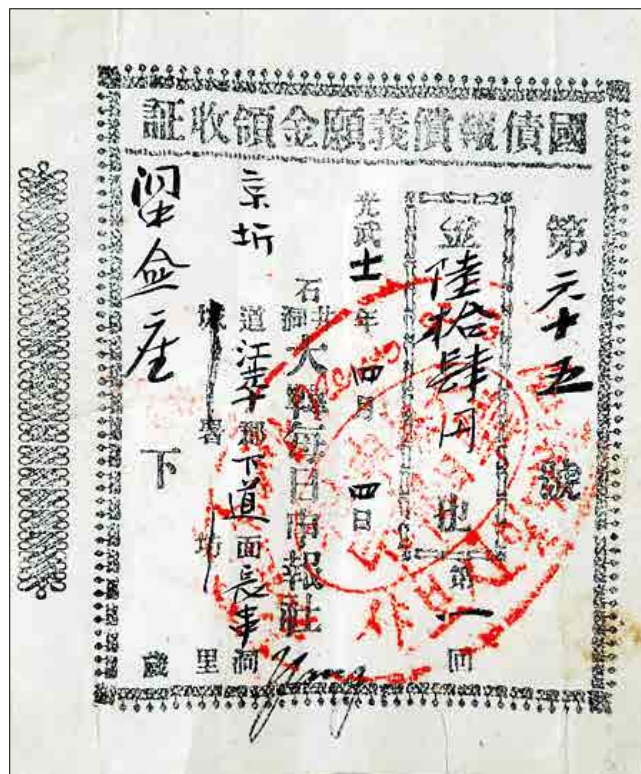 國債報償義願金領收証
第 六十五 號
金 陸拾肆円 也 第一回
光武十一年 四月 四日
石井洞 大韓每日申報社
京圻道 江華郡 下道面 長 洞
署 坊 里
僉座 下 歲